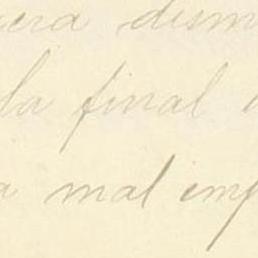 era dism
la final
a mal emp